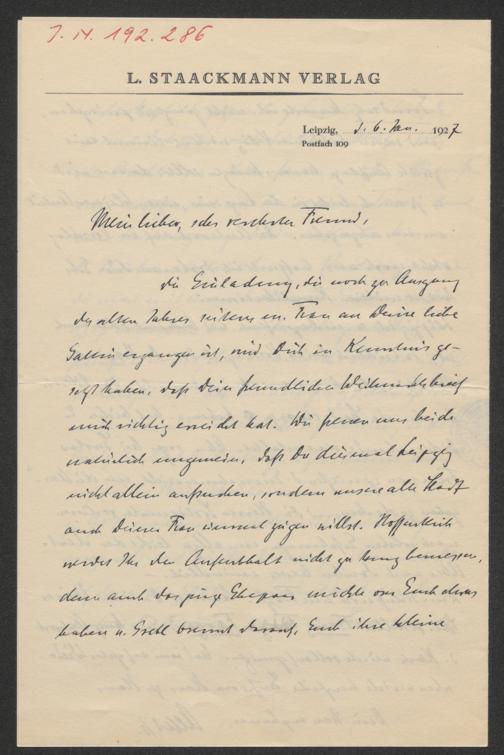 J. N. 192.286
L. STAACKMANN VERLAG
Leipzig, d. 6. Jan. 1927
Postfach 109
Mein lieber, sehr verehrter Freund,
die Einladung, die noch zu Ausgang
des alten Jahres seitens m. Frau an Deine liebe
Gattin ergangen ist, wird Dich in Kenntnis ge-
setzt haben, daß Dein freundlicher Weihnachtsbrief
mich richtig erreicht hat. Wir freuen uns beide
natürlich ungemein, daß Du diesmal Leipzig
nicht allein aufsuchen, sondern unsere alte Stadt
auch Deiner Frau einmal zeigen willst. Hoffentlich
werdet Ihr den Aufenthalt nicht zu kurz bemessen,
denn auch das junge Ehepaar möchte von Euch etwas
haben u. Gretl brennt darauf, Euch ihre kleine